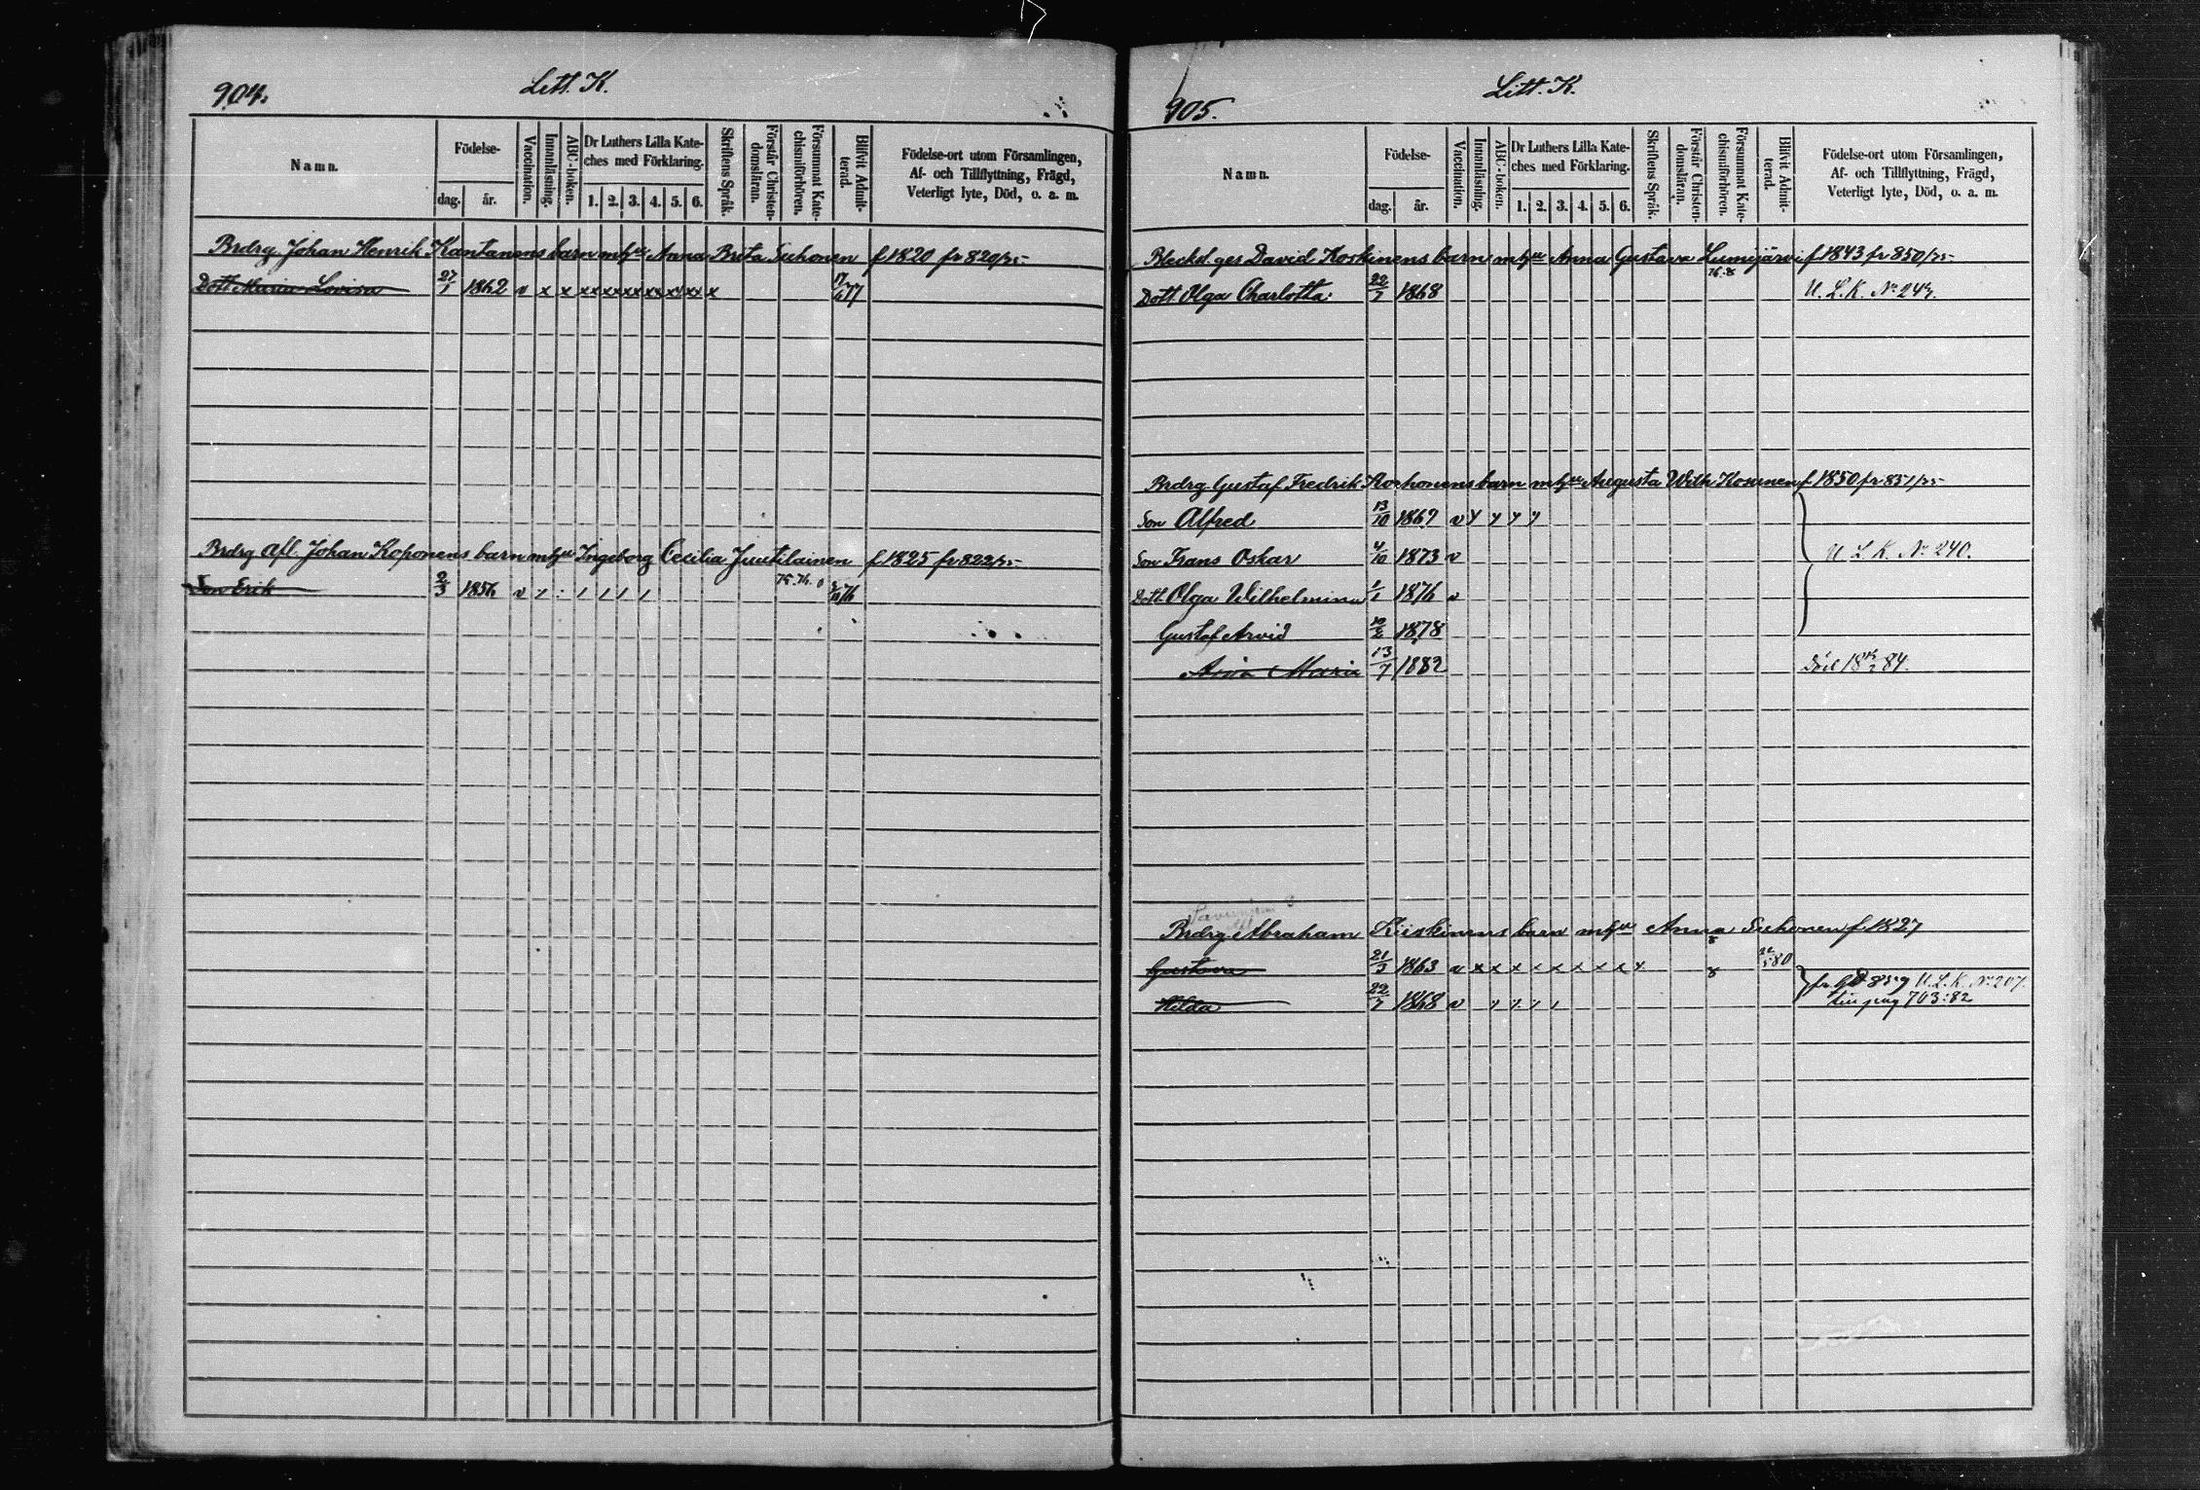 904.
Litt. K.
Namn.
Födelse-
dag.
år.
Vaccination.
Innanläsning.
ABC-boken.
Dr Luthers Lilla Kate-
ches med Förklaring.
1. 2. 3. 4. 5. 6.
Skriftens Språk.
Förstår Christen-
domsläran.
Försummat Kate-
chismiförhören.
Blifvit Admit-
terad.
Födelse-ort utom Församlingen,
Af- och Tillflyttning, Frägd,
Veterligt lyte, Död, o. a. m.
Brdrg Johan Henrik Kantanens barn m hu Anna Brita Suhonen f 1820 fr 820/75
Dott. Maria Lovisa 27/1 1862 v x x xx xx xx xx x xx x 17/6 77
Brdrg Afl. Johan Koponens barn m hu Ingeborg Cecilia Juutilainen f 1825 fr 822/75
Son Erik 2/3 1856 v 75.76. 76
905.
Litt. K.
Namn.
Födelse-
dag.
år.
Vaccination.
Innanläsning.
ABC-boken.
Dr Luthers Lilla Kate-
ches med Förklaring.
1. 2. 3. 4. 5. 6.
Skriftens Språk.
Förstår Christen-
domsläran.
Försummat Kate-
chismiförhören.
Blifvit Admit-
terad.
Födelse-ort utom Församlingen,
Af- och Tillflyttning, Frägd,
Veterligt lyte, Död, o. a. m.
Bleckd. ges David Koskinens barn m hu Anna Gustava Lumijärvi f 1843 fr 850/75
Dott. Olga Charlotta: 22/7 1868 U. L. K. No 243.
Brdrg Gustaf Fredrik Korhonens barn m hu Augusta Wilh Kosunen f 1850 fr 851/75
Son Alfred 13/10 1869 v y y y y
Son Frans Oskar 4/10 1873 v U. L. K. No 240.
Dott Olga Wilhelmina 1/1 1876 v
Gustaf Arvid 10/2 1878
Aina Maria 13/7 1882 Död 84.
Brdrg Abraham Kiiskinens barn m hu Anna Suhonen f 1827
Gustava 21/3 1863 v x x x x x x x x x 80
Hilda 22/7 1868 v U. L. K. No 207.
703:82